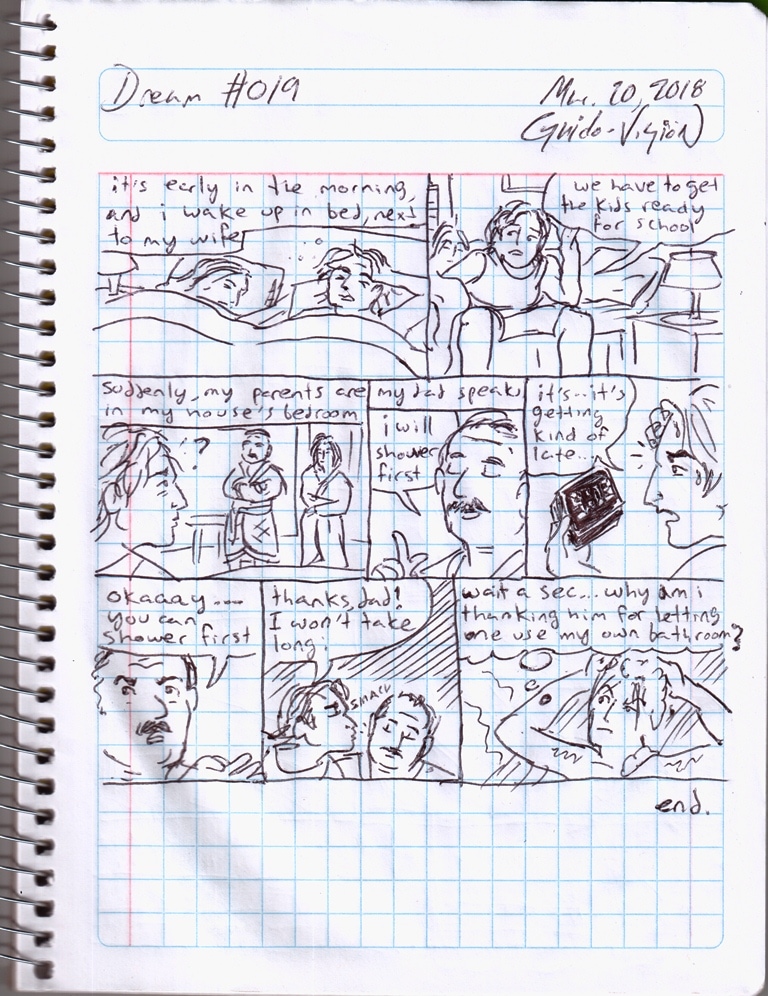 Dream #019
Mar. 20, 2018
(Guido-Vision)
it's early in the morning,
and i wake up in bed, next
to my wife
we have to get
the kids ready
for school
suddenly, my parents are
in my house's bedroom
?
my dad speaks
i will
shower
first
it's...it's
getting
kind of
late...
okaaay....
you can
shower first
thanks, dad!
I won't take
long!
SMACK
wait a sec... why am i
thanking him for letting
me use my own bathroom?
end.